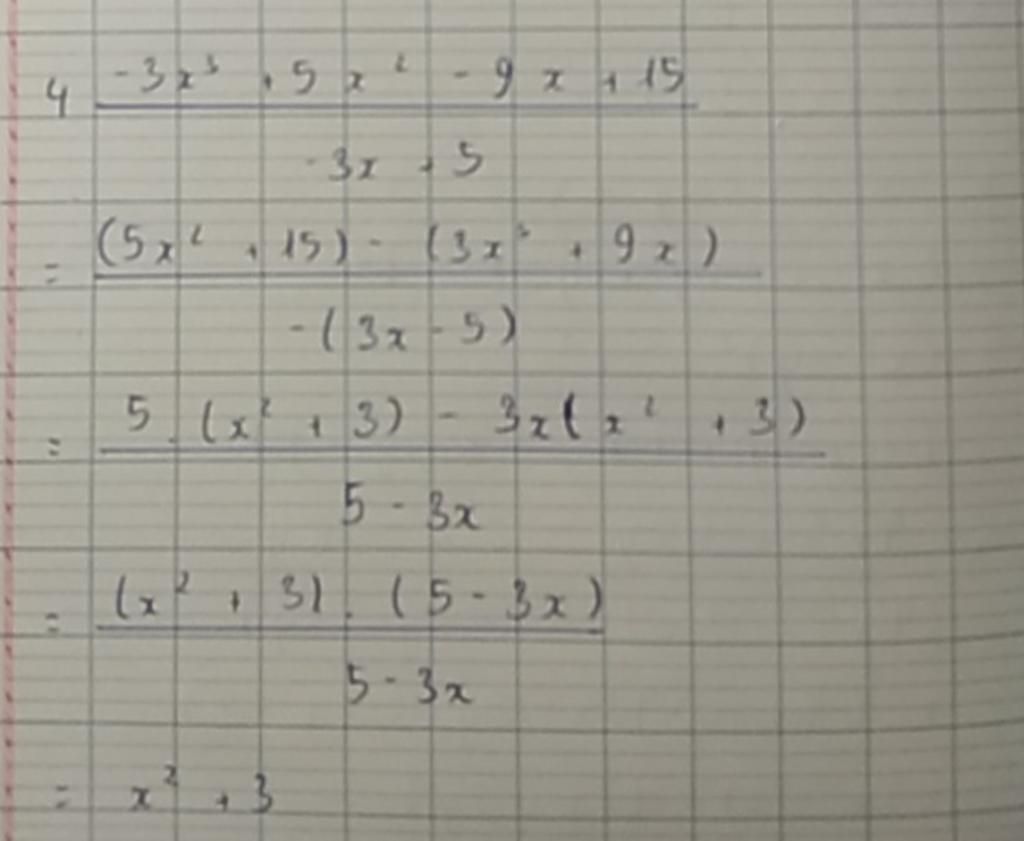 4 -3x³ + 5x² - 9x + 15
-3x + 5
= (5x² + 15) - (3x³ + 9x)
-(3x - 5)
= 5 . (x² + 3) - 3x(x² + 3)
5 - 3x
= (x² + 3) . (5 - 3x)
5 - 3x
= x² + 3